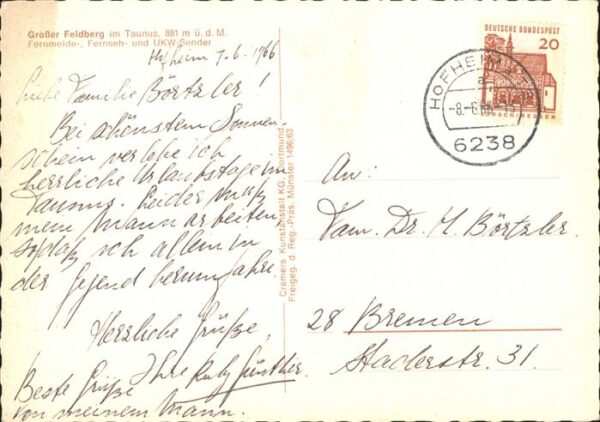 Großer Feldberg im Taunus, 881 m ü. d. M.
Fernmelde-, Fernseh- und UKW-Sender
Hofheim 7.6.1966
Liebe Familie Börtzler!
Bei schönstem Sonnen-
schein verlebe ich
herrliche Urlaubstage im
Taunus. Leider muß
mein Mann arbeiten,
sodaß ich allein in
der Gegend herumfahre.
Herzliche Grüße,
Ihre Ruth Günther.
Beste Grüße
von meinem Mann.
Cramers Kunstanstalt KG, Dortmund
Freigeg. d. Reg.-Präs. Münster 1496/63
DEUTSCHE BUNDESPOST
20
HOFHEIM
a
-8.-6.66
6238
An:
Fam. Dr. H. Börtzler.
28 Bremen
Staderstr. 31.